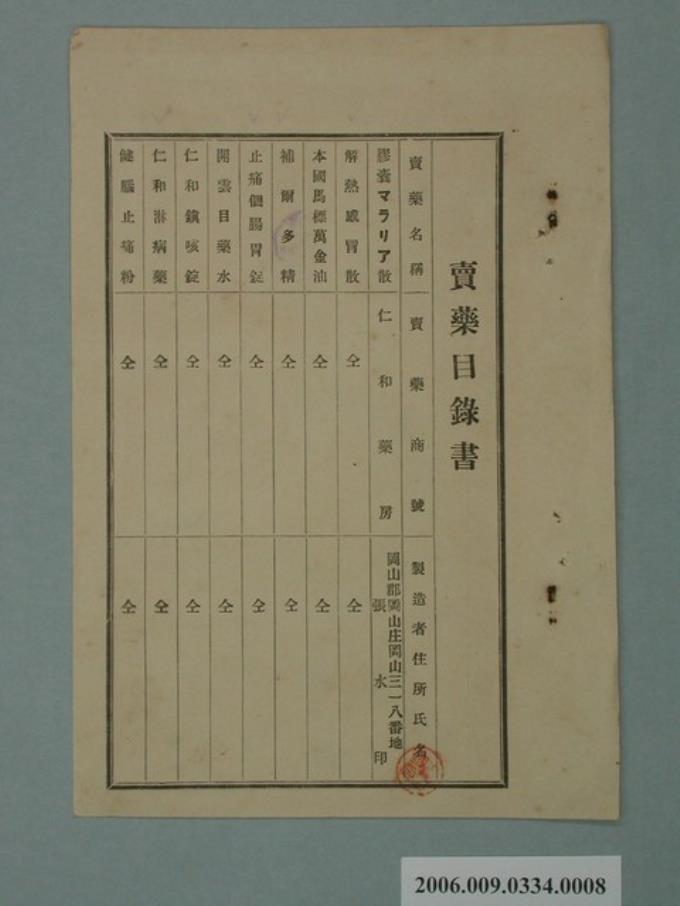 賣藥目錄書
賣藥名稱 賣藥商號 製造者住所氏名
膠囊マラリア散 仁和藥房 岡山郡岡山庄岡山三一八番地 張水印
解熱感冒散 仝 仝
本國馬標萬金油 仝 仝
補爾多精 仝 仝
止痛健腸胃錠 仝 仝
開雲目藥水 仝 仝
仁和鎮咳錠 仝 仝
仁和淋病藥 仝 仝
健腦止痛粉 仝 仝
2006.009.0334.0008